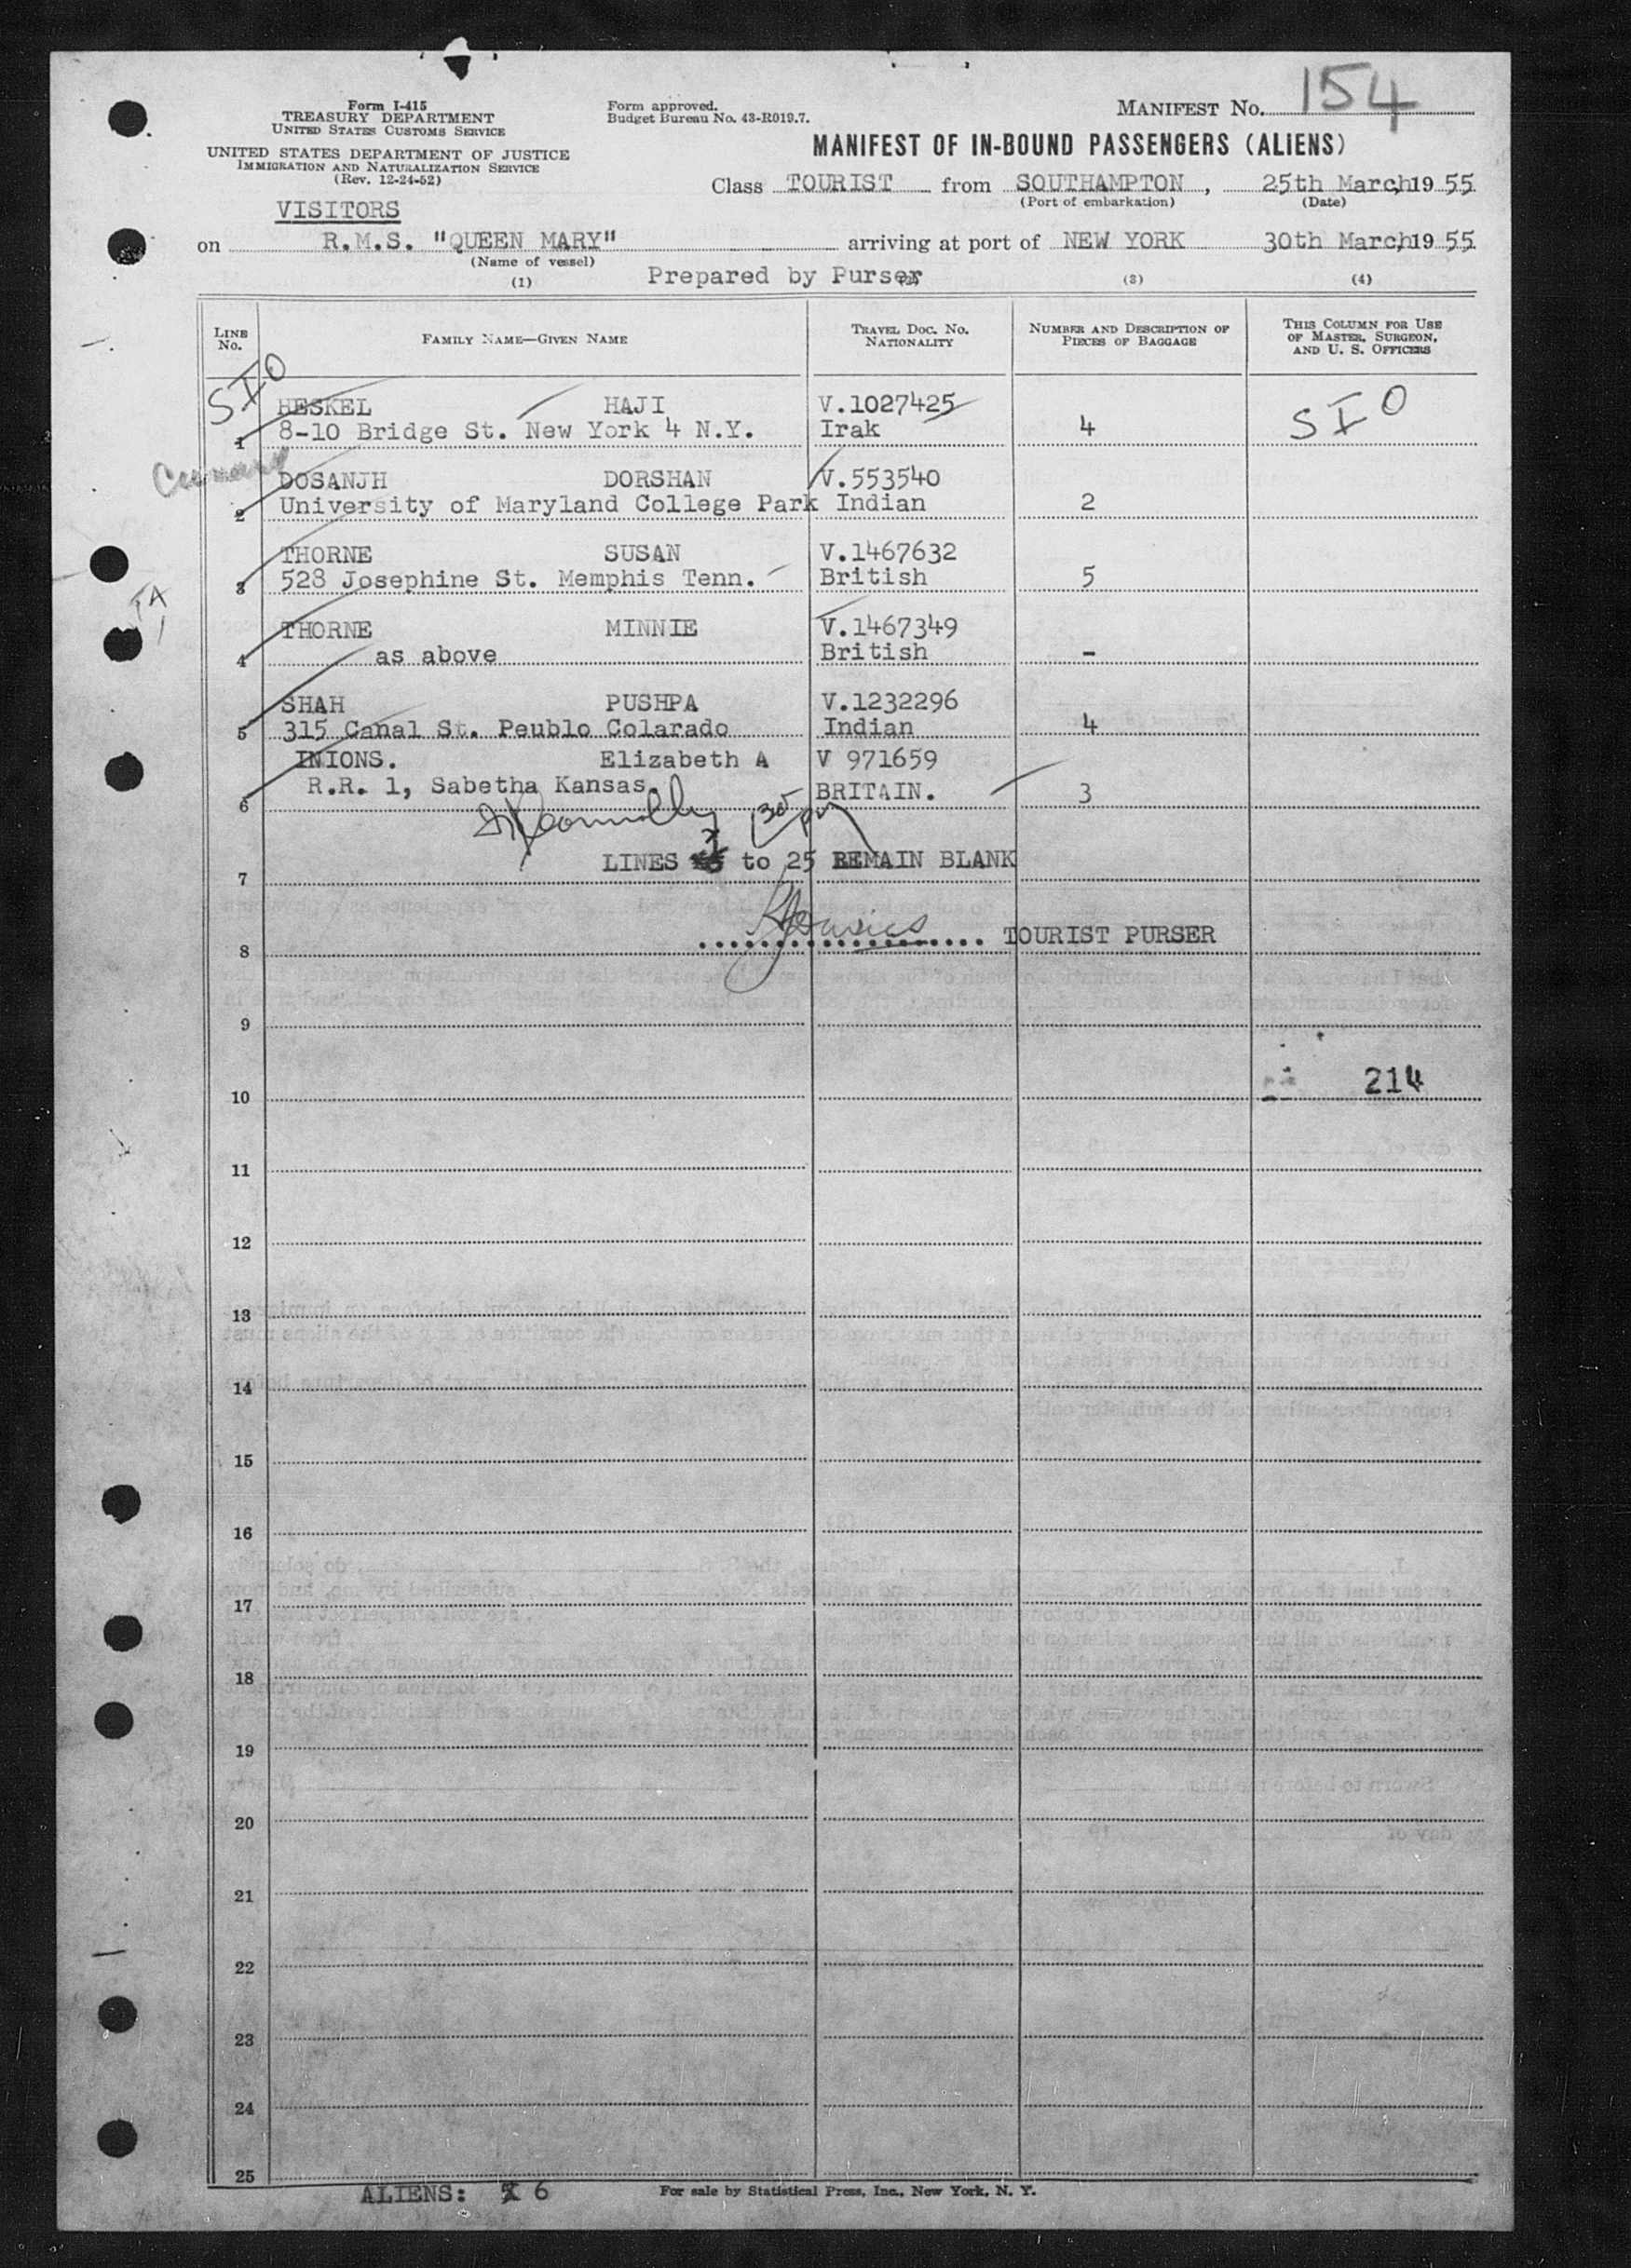 Form I-415
TREASURY DEPARTMENT
UNITED STATES CUSTOMS SERVICE
UNITED STATES DEPARTMENT OF JUSTICE
IMMIGRATION AND NATURALIZATION SERVICE
(Rev. 12-24-52)
Form approved.
Budget Bureau No. 43-R019.7.
MANIFEST NO. 154
MANIFEST OF IN-BOUND PASSENGERS (ALIENS)
Class TOURIST from SOUTHAMPTON, 25th March, 19 55
(Port of embarkation) (Date)
VISITORS
on R.M.S. "QUEEN MARY" arriving at port of NEW YORK 30th March, 19 55
(Name of vessel)
(1) Prepared by Purser (3) (4)
LINE No. FAMILY NAME—GIVEN NAME TRAVEL DOC. NO. NATIONALITY NUMBER AND DESCRIPTION OF PIECES OF BAGGAGE THIS COLUMN FOR USE OF MASTER, SURGEON, AND U. S. OFFICERS
SIO
HESKEL HAJI V.1027425
1 8-10 Bridge St. New York 4 N.Y. Irak 4 SIO
DOSANJH DORSHAN V.553540
2 University of Maryland College Park Indian 2
THORNE SUSAN V.1467632
3 528 Josephine St. Memphis Tenn. British 5
THORNE MINNIE V.1467349
4 as above British -
SHAH PUSHPA V.1232296
5 315 Canal St. Peublo Colarado Indian 4
INIONS. Elizabeth A V 971659
6 R.R. 1, Sabetha Kansas. BRITAIN. 3
LINES 7 to 25 REMAIN BLANK
7
8 TOURIST PURSER
9
10 214
11
12
13
14
15
16
17
18
19
20
21
22
23
24
25
ALIENS: 6 For sale by Statistical Press, Inc., New York, N. Y.